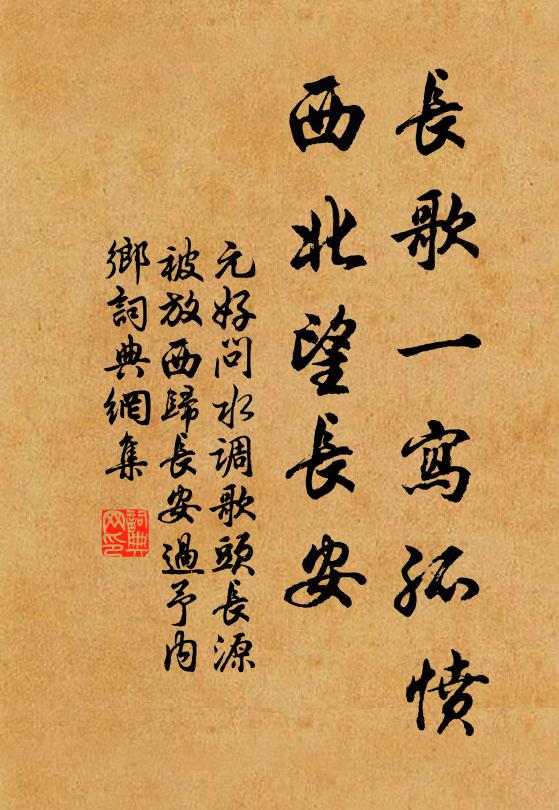 長歌一寫孤憤
西北望長安
元好問水調歌頭長源
被放西歸長安過予內
鄉詞典網集
詞典
網印